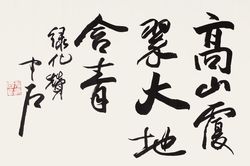 高山覆
翠大地
含青
绿化赞